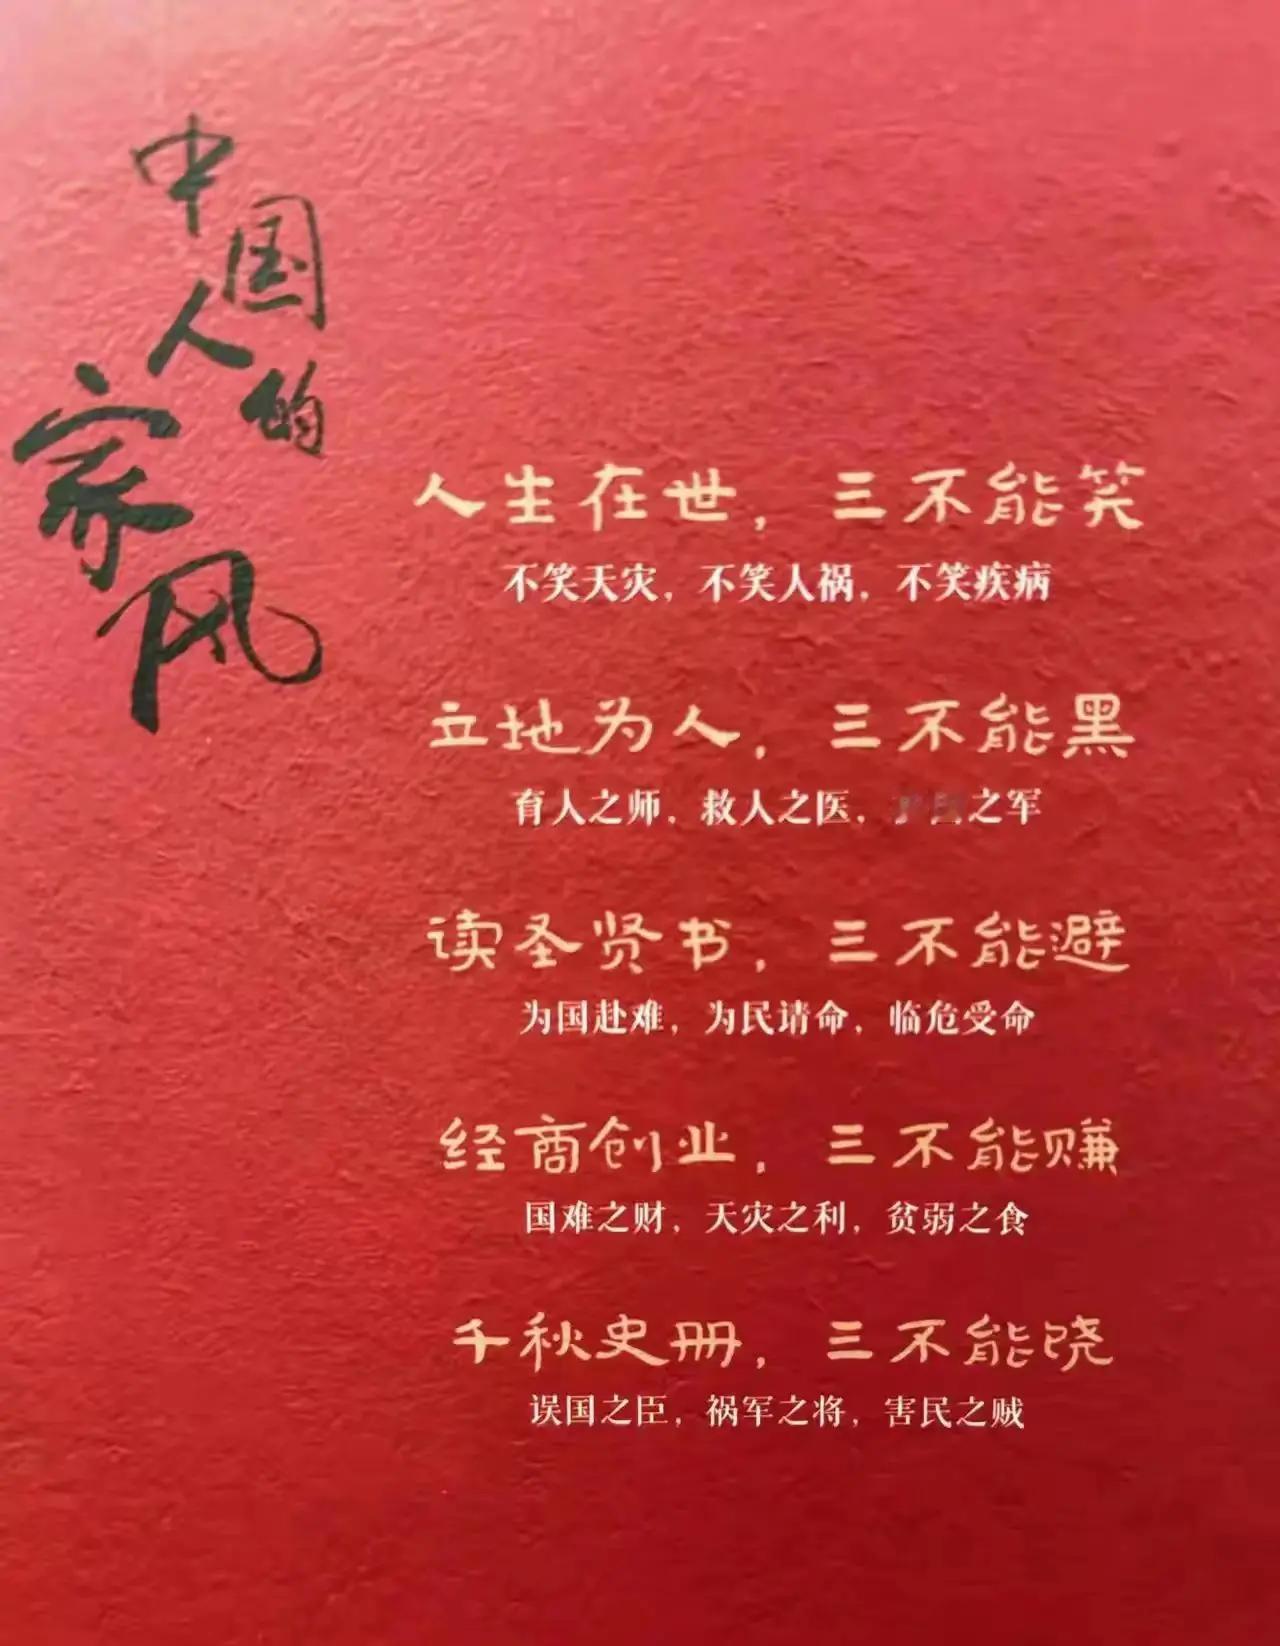 中国人的家风
人生在世，三不能笑
不笑天灾，不笑人祸，不笑疾病
立地为人，三不能黑
育人之师，救人之医，之军
读圣贤书，三不能避
为国赴难，为民请命，临危受命
经商创业，三不能赚
国难之财，天灾之利，贫弱之食
千秋史册，三不能晓
误国之臣，祸军之将，害民之贼